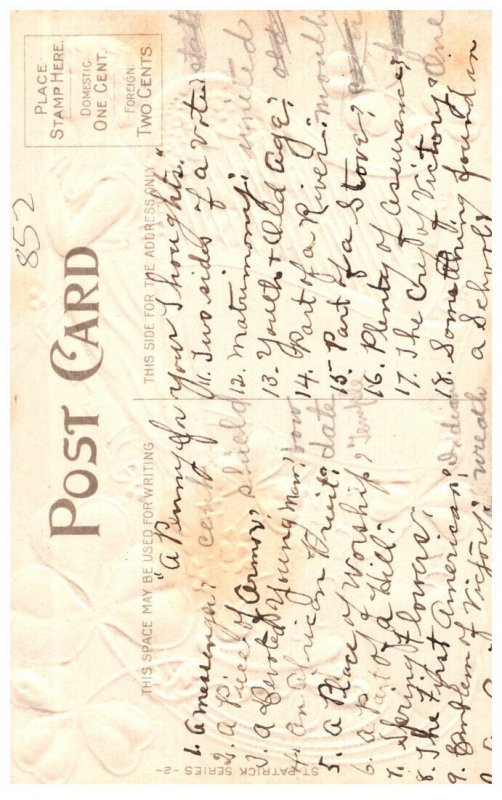 852
POST CARD
PLACE
STAMP HERE.
DOMESTIC:
ONE CENT.
FOREIGN:
TWO CENTS.
THIS SPACE MAY BE USED FOR WRITING
THIS SIDE FOR THE ADDRESS ONLY
"A Penny for your Thoughts."
1. A messenger? cent
2. A Piece of Armor, shield
3. A Devoted Young Man? bow
4. An African Fruit? date
5. A Place of Worship, Temple
6. A part of a Hill?
7. Spring Flowers?
8. The First American? Indian
9. Emblem of Victory? wreath
11. Two sides of a vote?
12. Matrimony? united
13. Youth & Old Age?
14. Part of a River? mouth
15. Part of a Stove?
16. Plenty of assurance?
17. The Cry of Victory?
18. Something found in
a School?
ST. PATRICK SERIES -2-